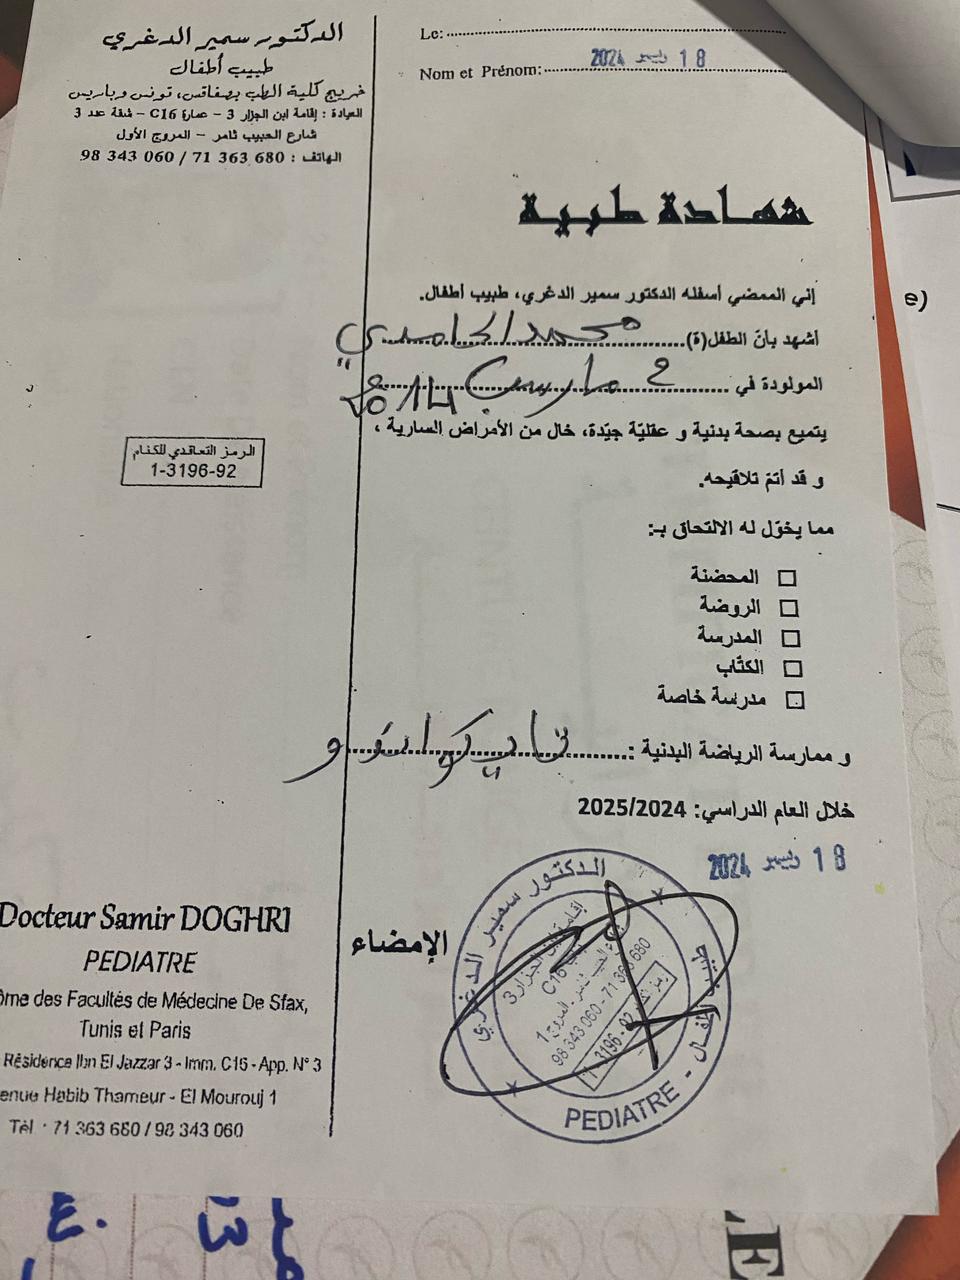 الدكتور سمير الدغري
طبيب أطفال
خريج كلية الطب بصفاقس، تونس وباريس
العيادة : إقامة ابن الجزار 3 - عمارة C16 - شقة عدد 3
شارع الحبيب ثامر - المروج الأول
الهاتف : 71 363 680 / 98 343 060
Le:
18 ديسمبر 2024
Nom et Prénom:
شهادة طبية
إني الممضي أسفله الدكتور سمير الدغري، طبيب أطفال.
أشهد بأن الطفل(ة) محمد الحامدي
المولودة في 2 مارس 2014
يتميع بصحة بدنية و عقليّة جيّدة، خال من الأمراض السارية ،
و قد أتمّ تلاقيحه.
مما يخوّل له الالتحاق بـ:
المحضنة
الروضة
المدرسة
الكتّاب
مدرسة خاصة
و ممارسة الرياضة البدنية : تايكواندو
خلال العام الدراسي: 2025/2024
18 ديسمبر 2024
الإمضاء
الرمز التعاقدي للكنام
1-3196-92
الدكتور سمير الدغري
طبيب أطفال - PEDIATRE
إقامة ابن الجزار 3
C16
98 343 060 - 71 363 680
Docteur Samir DOGHRI
PEDIATRE
ôme des Facultés de Médecine De Sfax,
Tunis et Paris
Résidence Ibn El Jazzar 3 - Imm. C16 - App. N° 3
enue Habib Thameur - El Mourouj 1
Tél : 71 363 680 / 98 343 060
e)